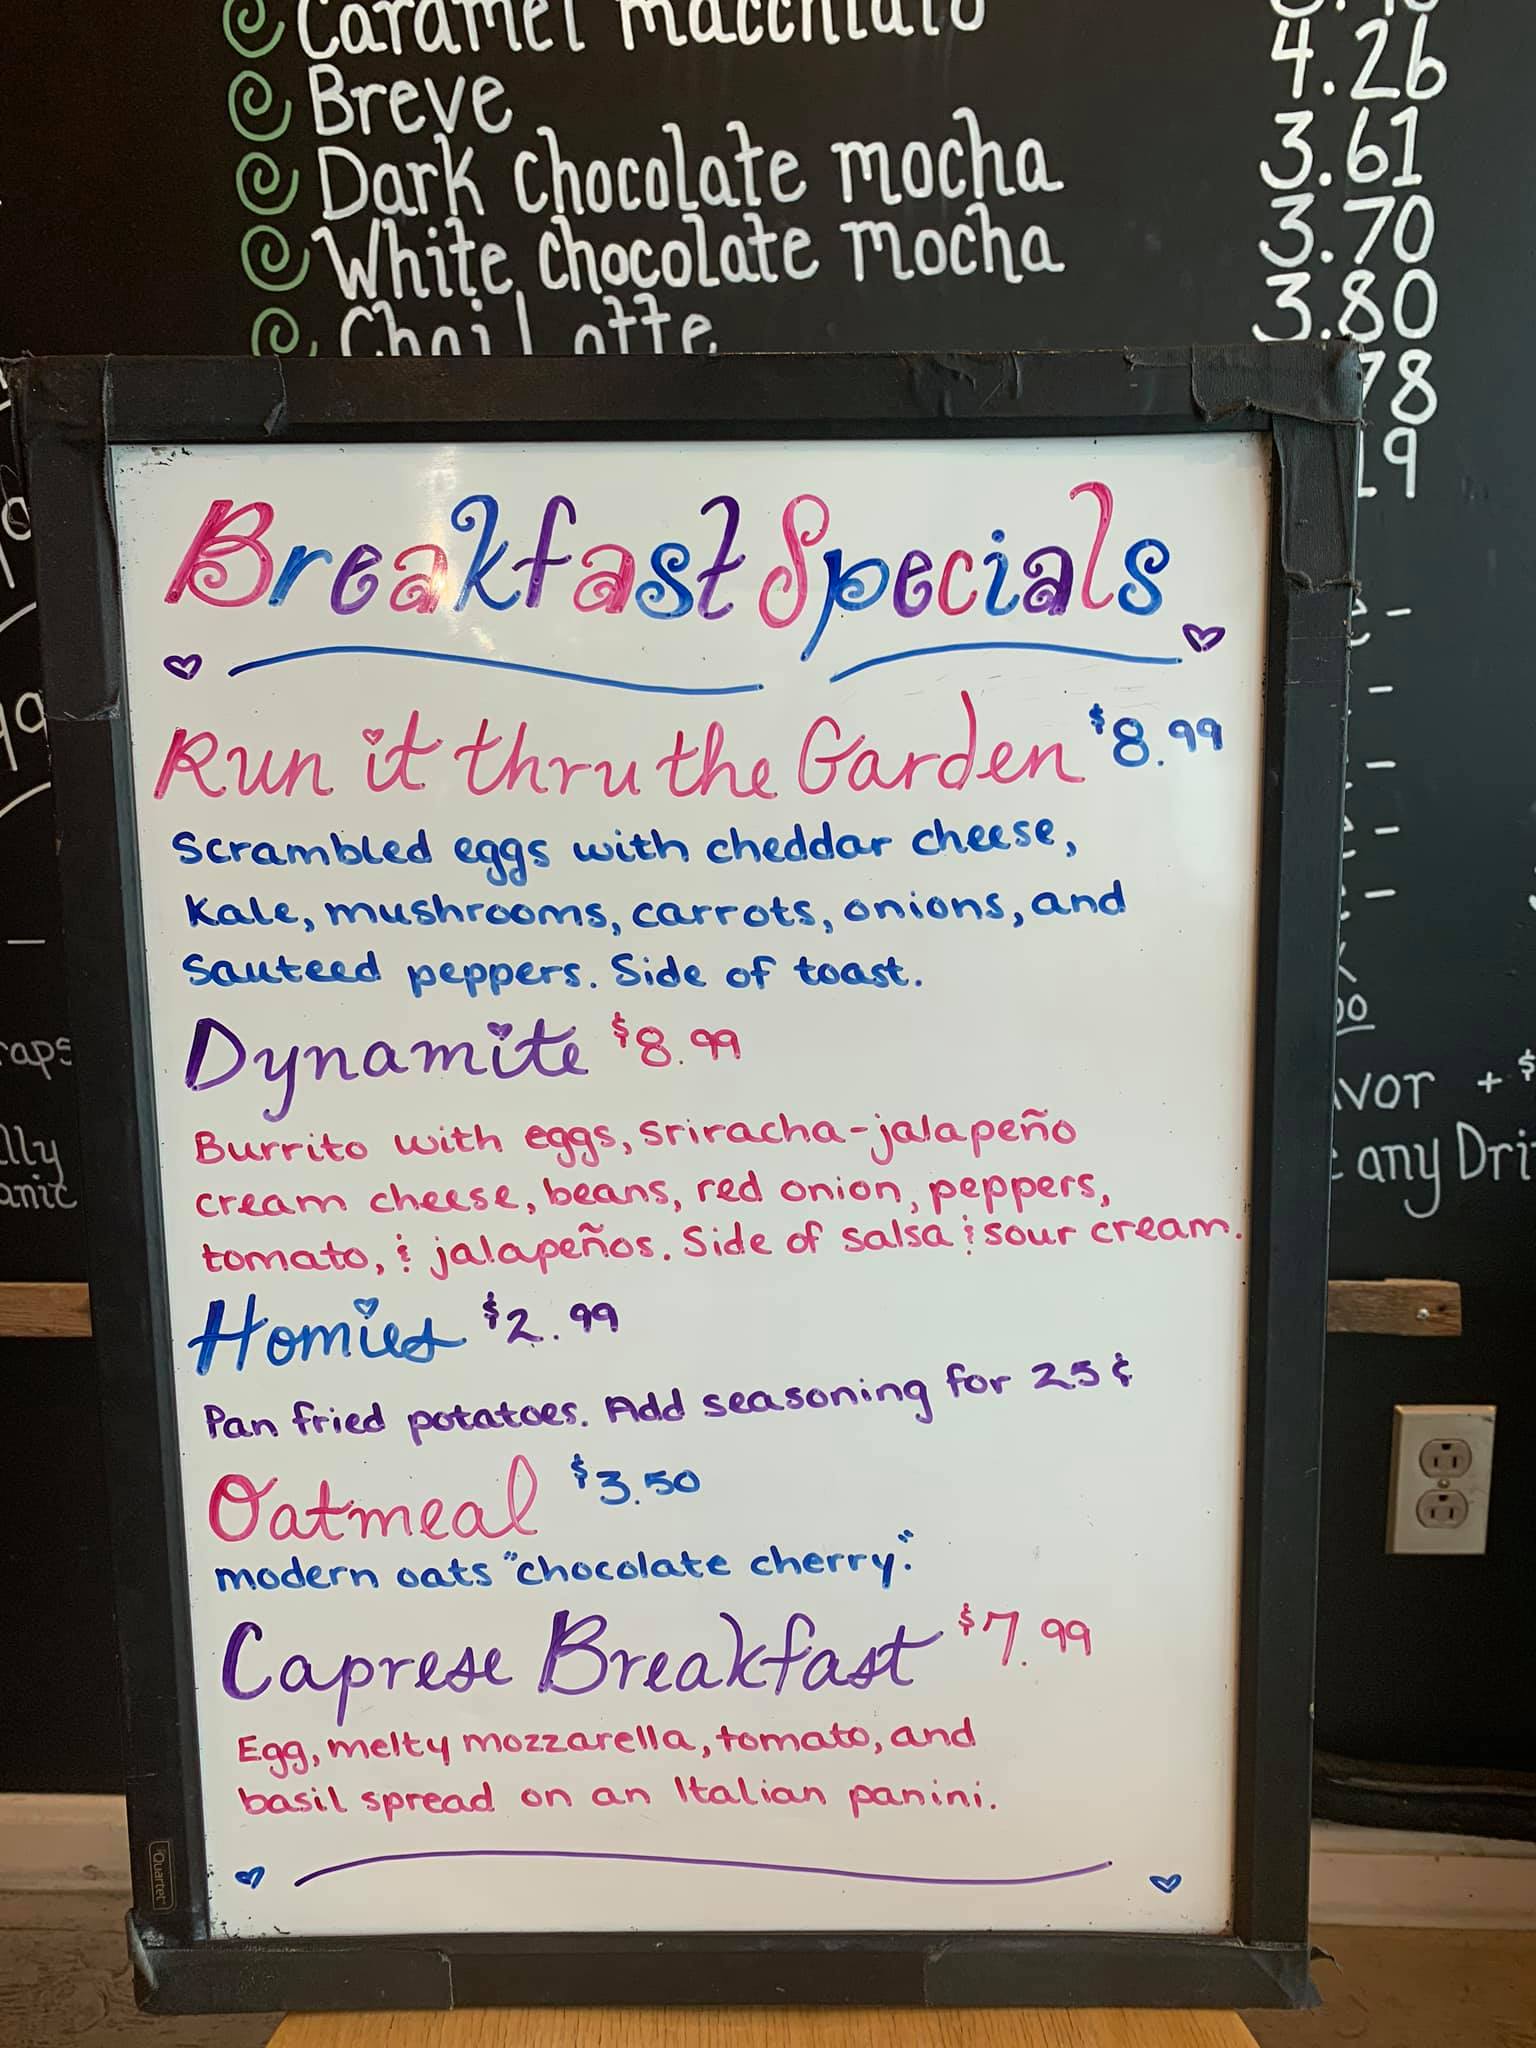 Caramel macchiato
Breve 4.26
Dark chocolate mocha 3.61
White chocolate mocha 3.70
Chai Latte 3.80
78
19
Breakfast Specials
Run it thru the Garden $8.99
Scrambled eggs with cheddar cheese,
Kale, mushrooms, carrots, onions, and
Sauteed peppers. Side of toast.
Dynamite $8.99
Burrito with eggs, sriracha-jalapeño
cream cheese, beans, red onion, peppers,
tomato, & jalapeños. Side of salsa & sour cream.
Homies $2.99
Pan fried potatoes. Add seasoning for 25¢
Oatmeal $3.50
modern oats "chocolate cherry".
Caprese Breakfast $7.99
Egg, melty mozzarella, tomato, and
basil spread on an Italian panini.
Quartet
raps
lly
anic
vor + $
any Dri